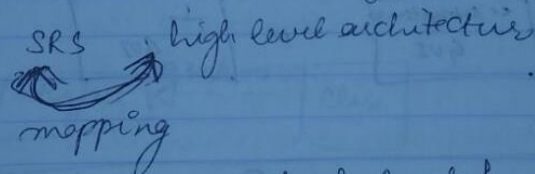 SRS high level architecture
mapping